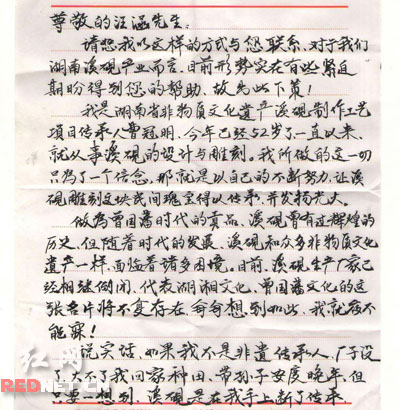 尊敬的汪涵先生:
请恕我以这样的方式与您联系、对于我们
湖南溪砚产业而言、目前形势实在有些紧迫
期盼得到您的帮助、故先策!
我是湖南省非物质文化遗产溪砚制作工艺
项目传承人曹冠明、今年已经52岁了一直以来、
就从事溪砚的设计与雕刻。我所做的这一切
只为了一个信念、那就是以自己的不断努力、让溪
砚雕刻这块民间瑰宝得以传承、并发扬光大。
做为曾国藩时代的贡品、溪砚曾有过辉煌的
历史、但随着时代的发展、溪砚和众多非物质文化
遗产一样、面临着诸多困境。目前、溪砚生产厂家已
经相继倒闭、代表湖湘文化、曾国藩文化的这
张名片将不复存在、每每想到如此、我就夜不
能寐!
说实话、如果我不是非遗传承人、厂子没
不了我回家种田、带孙子安度晚年、但
只要一想到、溪砚是在我手上断了传承
红网
REDNET.CN